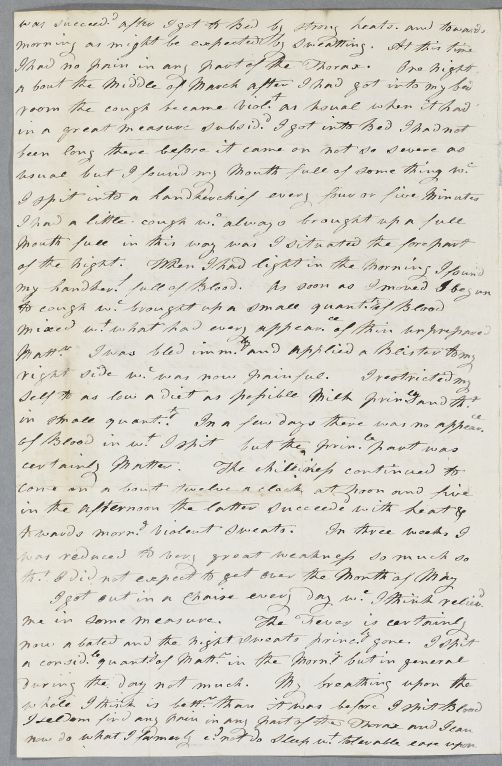 was succeed.d after I got to Bed by strong heats. and towards
morning as might be expected by sweatting. At this time
I had no pain in any part of the Thorax. One Night
about the Middle of March after I had got into my bed
room the cough became Viol.t as usual when it had
in a great measure subsid.d I got into Bed I had not
been long there before it came on not so severe as
usual but I found my Mouth full of something w.c
I spit into a handkerchief every four or five Minutes
I had a little cough w.c always brought up a full
Mouth full in this way was I situated the forepart
of the Night. When I had light in the Morning I found
my handker.f full of Blood. As soon as I moved I began
to cough w.c brought up a small quant.ty of Blood
mixed w.t what had every appear.ce of thin unprepared
Matt.r I was bled imm.ty and applied a Blister to my
right side w.c was now painful. I restricted my
self to as low a diet as possible Milk prin.ly and th.t
in small quant.ty In a few days there was no appear.ce
of Blood in w.t I spit but the prin.le part was
certainly Matter. The chilliness continued to
come on about twelve a clock at noon and five
in the afternoon the latter succeeded with heat &
towards morn.g Violent Sweats. In three weeks I
was reduced to very great weakness so much so
th.t I did not expect to get over the Month of May
I got out in a Chaise every day w.c I think reliev.d
me in some measure. The Fever is certainly
now abated and the Night sweats princ.ly gone. I spit
a consid.le quant of Matt.r in the Morn.g but in general
during the day not much. My breathing upon the
whole I think is bett.r than it was before I spit Blood
I seldom find any pain in any part of the Thorax and I can
now do what I formerly c.d not do sleep w.t tolerable ease upon